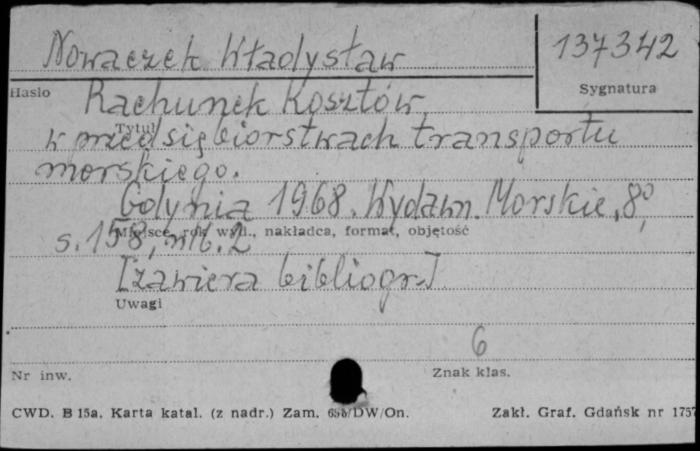 Nowaczek Władysław
137342
Hasło
Sygnatura
Rachunek kosztów
Tytuł
w przedsiębiorstwach transportu
morskiego.
Gdynia 1968. Wydawn. Morskie, 8°,
Miejsce, rok wyd., nakładca, format, objętość
s. 158, nlb. 2
[zawiera bibliogr.]
Uwagi
6
Nr inw.
Znak klas.
CWD. B 15a. Karta katal. (z nadr.) Zam. /DW/On.
Zakł. Graf. Gdańsk nr 1757